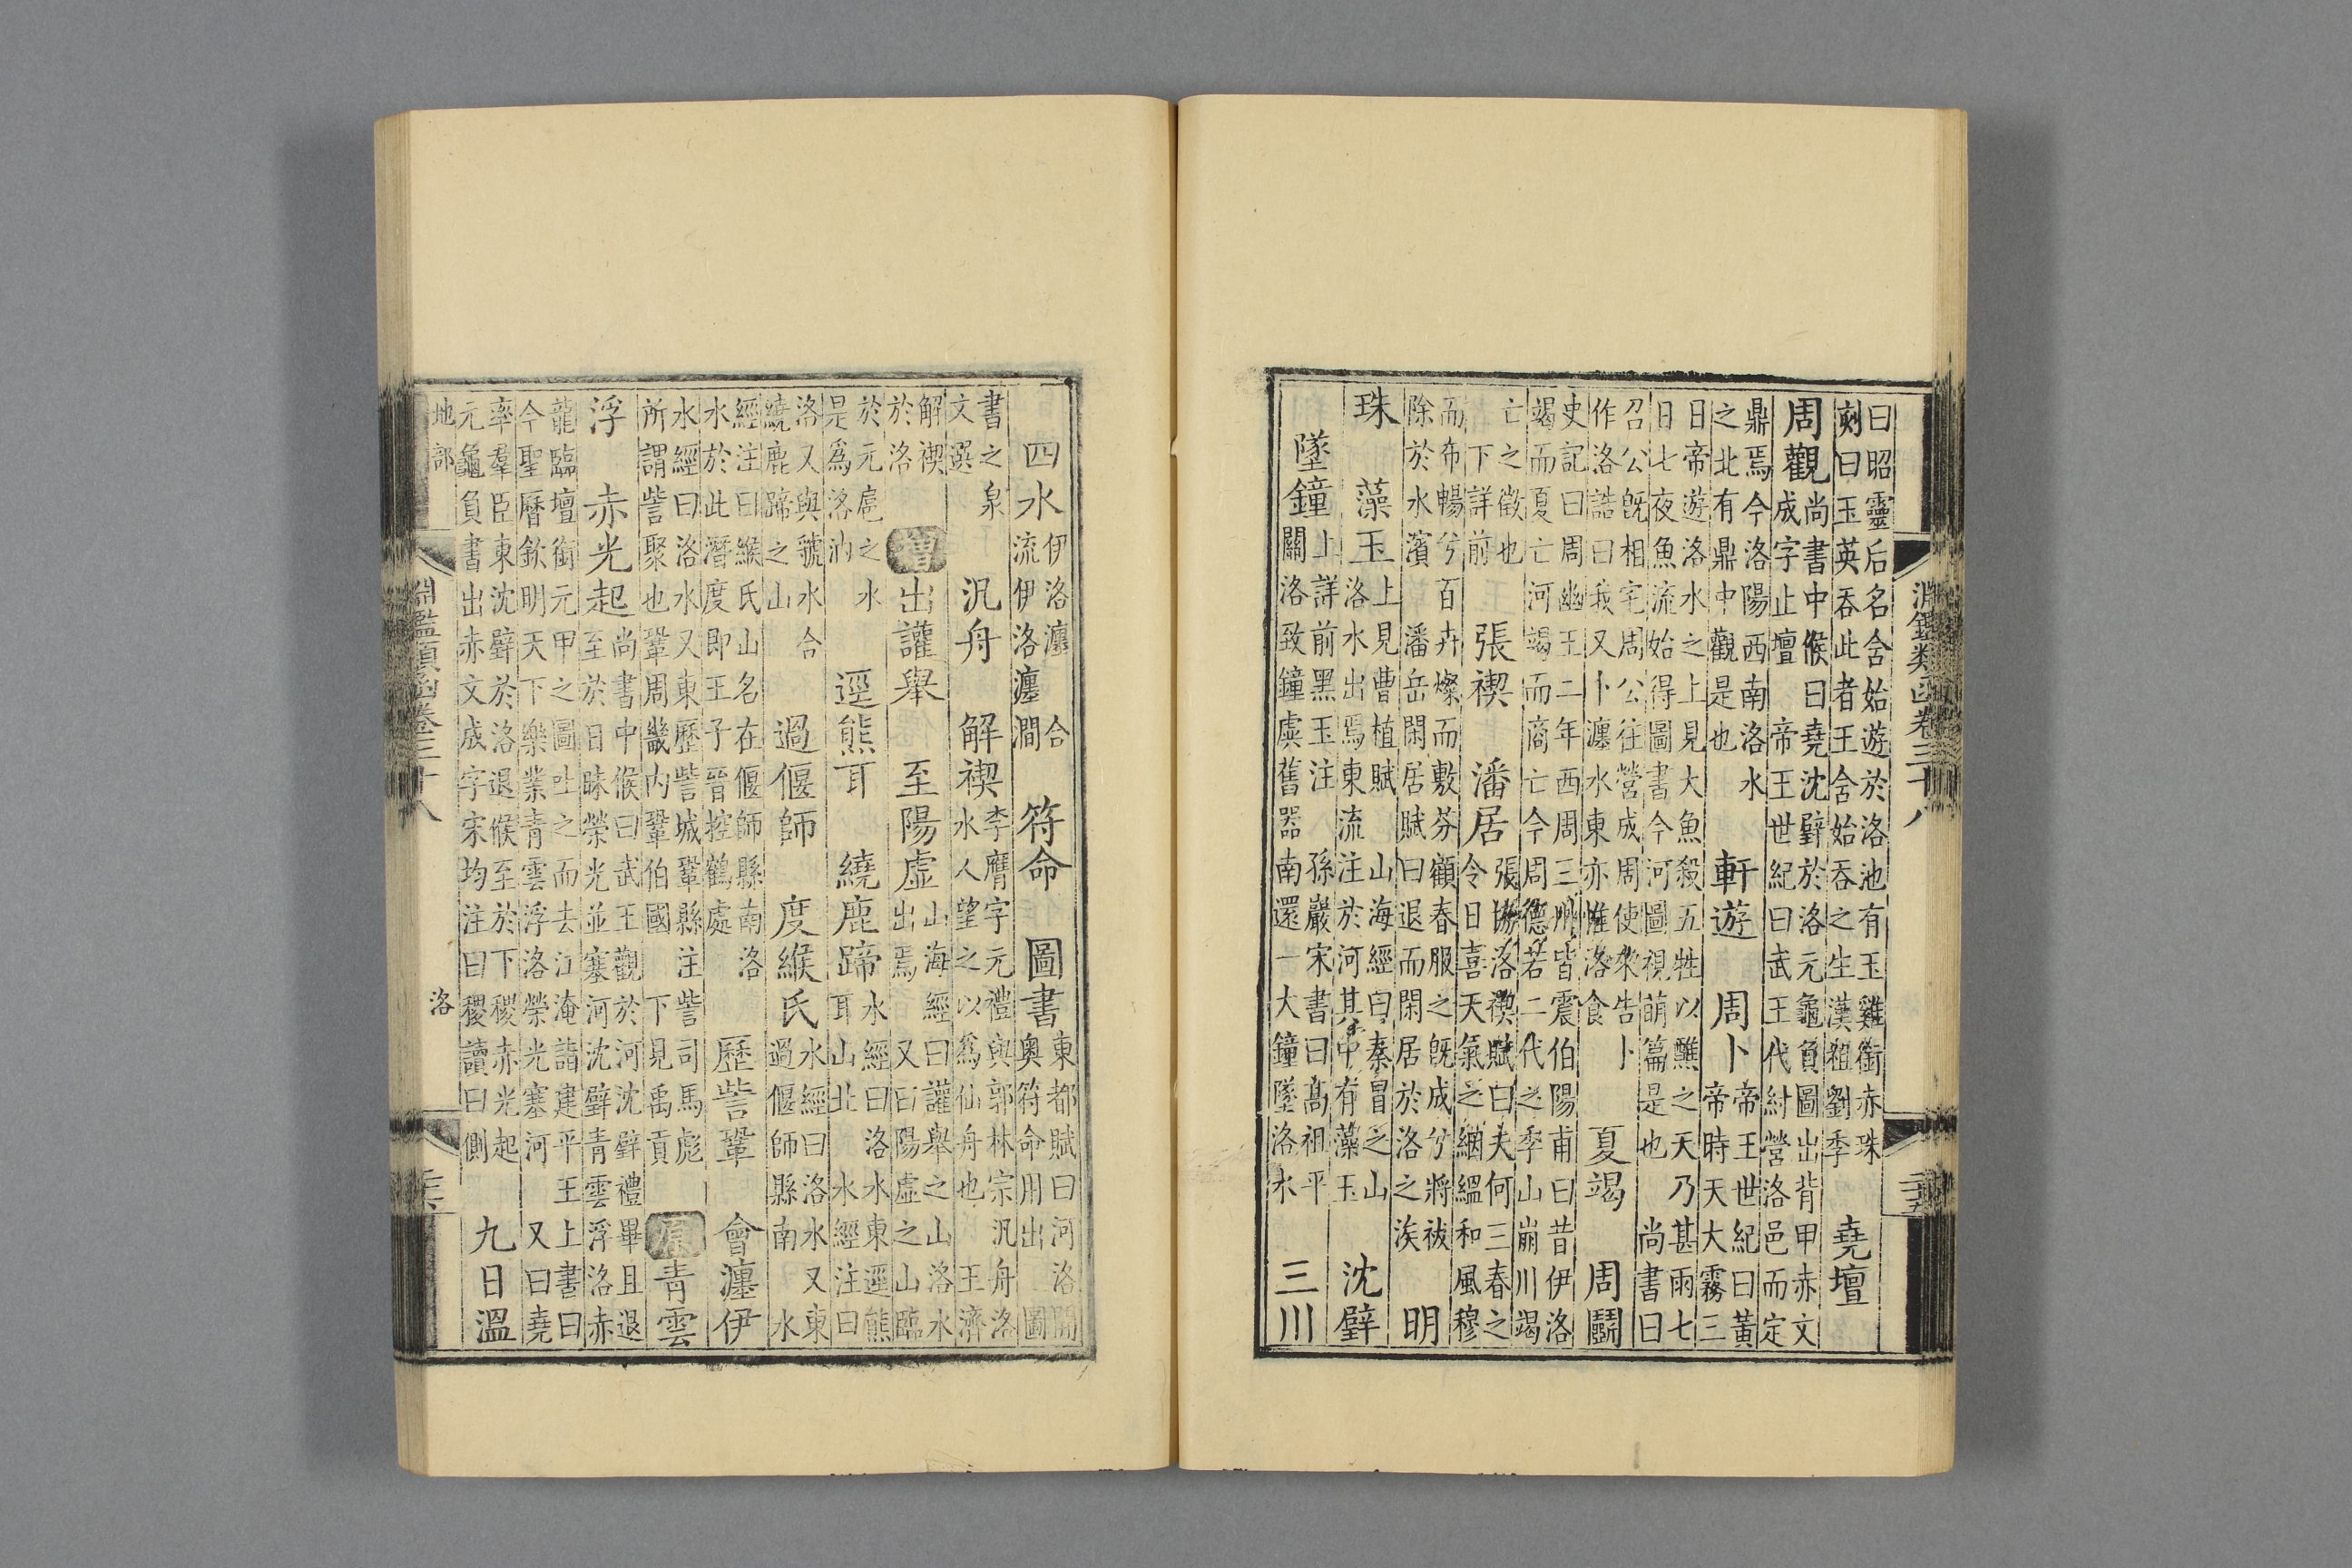 淵鑑類函卷三十八 二十五
曰昭靈后名舍始遊於洛池有玉雞銜赤珠
刻曰玉英吞此者王舍始吞之生漢祖劉季 堯壇
周觀 尚書中候曰堯沈璧於洛元龜負圖出背甲赤文
成字止壇 帝王世紀曰武王代紂營洛邑而定
鼎焉今洛陽西南洛水
之北有鼎中觀是也 軒遊 周卜 帝王世紀曰黃
帝時天大霧三
日帝遊洛水之上見大魚殺五牲以醮之天乃甚雨七
日七夜魚流始得圖書今河圖視萌篇是也 尚書曰
召公既相宅周公往營成周使來告卜
作洛誥曰我又卜瀍水東亦惟洛食 夏竭 周鬭
史記曰周幽王二年西周三川皆震伯陽甫曰昔伊洛
竭而夏亡河竭而商亡今周德若二代之季山崩川竭
亡之徵也
下詳前 張禊 潘居 張協洛禊賦曰夫何三春之
令日喜天氣之絪縕和風穆
而布暢兮百卉燦而敷芬顧春服之既成兮將祓
除於水濱 潘岳閑居賦曰退而閑居於洛之涘 明
珠 藻玉 上見曹植賦 山海經曰秦冒之山
洛水出焉東流注於河其中有藻玉 沈璧
墜鐘 上詳前黑玉注 孫巖宋書曰髙祖平
關洛致鐘虡舊器南還一大鐘墜洛水 三川
四水 伊洛瀍合
流伊洛瀍澗 符命 圖書 東都賦曰河洛開
奧符命用出 圖
書之泉
文選 汎舟 解禊 李膺字元禮與郭林宗汎舟洛
水人望之以為仙舟也 王濟
解禊
於洛 增 出讙舉 至陽虛 山海經曰讙舉之山洛水
出焉 又曰陽虛之山臨
於元扈之水
是為洛汭 逕熊耳 繞鹿蹄 水經曰洛水東逕熊
耳山北 水經注曰
洛又與虢水合
繞鹿蹄之山 過偃師 度緱氏 水經曰洛水又東
過偃師縣南 水
經注曰緱氏山名在偃師縣南洛
水於此潛度即王子晉控鶴處 歷訾鞏 會瀍伊
水經曰洛水又東歷訾城鞏縣注訾司馬彪
所謂訾聚也鞏周畿內鞏伯國 下見禹貢 原 青雲
浮 赤光起 尚書中候曰武王觀於河沈璧禮畢且退
至於日昧榮光並塞河沈璧青雲浮洛赤
龍臨壇銜元甲之圖吐之而去江淹詣建平王上書曰
今聖曆欽明天下樂業青雲浮洛榮光塞河 又曰堯
率羣臣東沈璧於洛退候至於下稷赤光起
元龜負書出赤文成字宋均注曰稷讀曰側 九日溫
地部 洛
淵鑑類函卷三十八 二十六